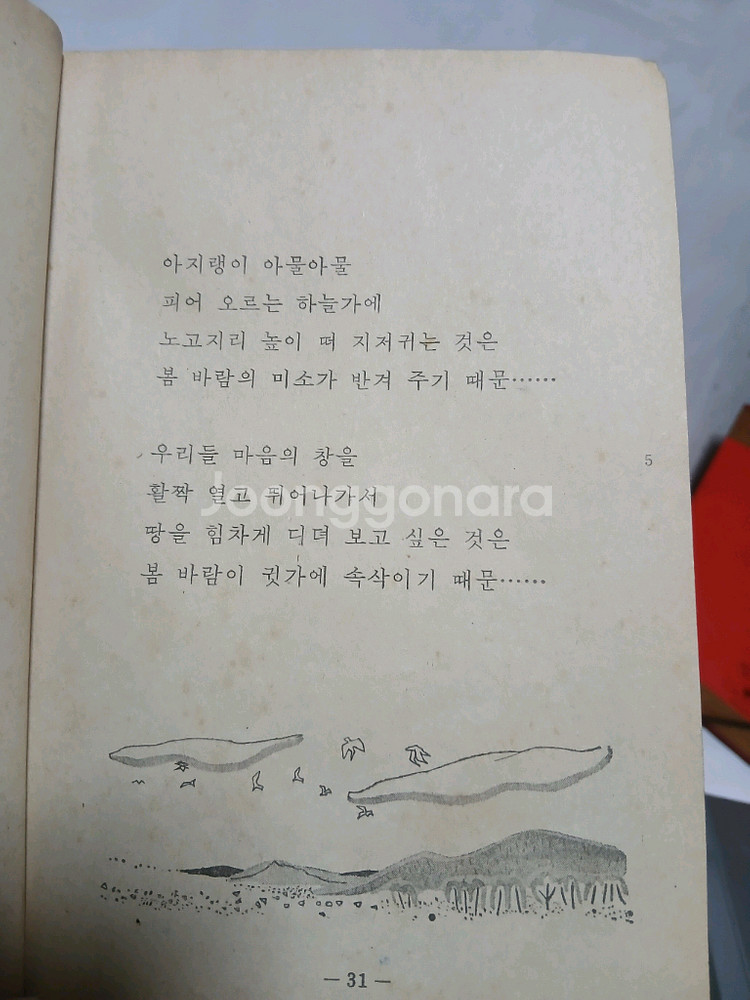 아지랭이 아물아물
피어 오르는 하늘가에
노고지리 높이 떠 지저귀는 것은
봄 바람의 미소가 반겨 주기 때문……
우리들 마음의 창을
5
활짝 열고 뛰어나가서
땅을 힘차게 디뎌 보고 싶은 것은
봄 바람이 귓가에 속삭이기 때문……
Joonggonara
— 31 —